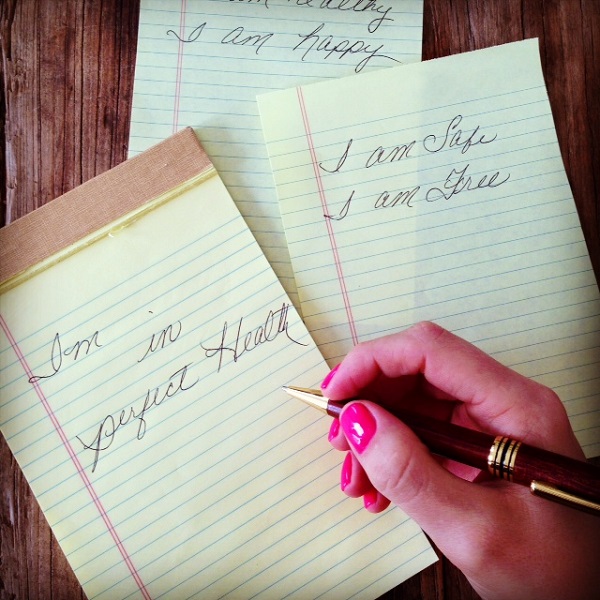 am healthy
I am happy
I am Safe
I am Free
I'm in
perfect Health